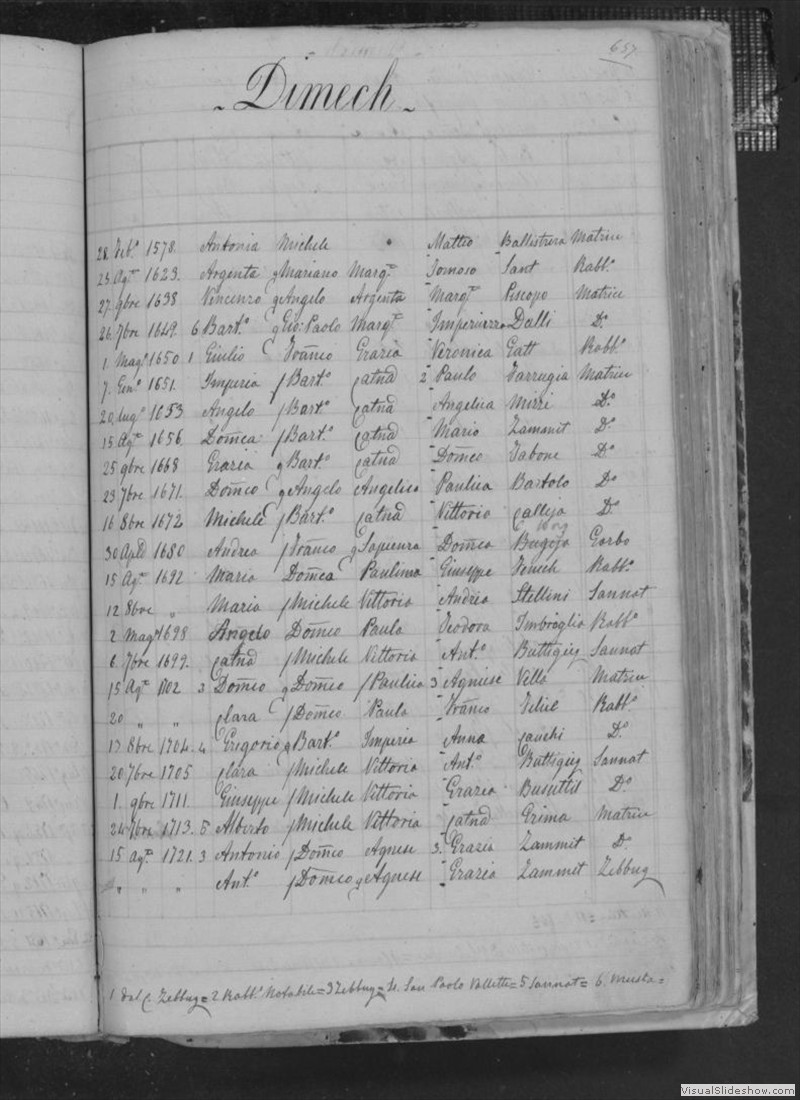 657
Dimech
28 Feb.o 1578. Antonia Michele Matteo Ballistrera Matrice
23 Ag.to 1623. Argenta q Mariano Marg.ta Tomaso Sant Rabb.o
27 9bre 1638 Vincenzo q Angelo Argenta Marg.ta Piscopo Matrice
26 7bre 1649. 6 Bart.o q Gio: Paolo Marg.ta Imperiuzza Dalli D.o
1 Mag.o 1650 1 Giulio Franco Grazia Veronica Gatt Rabb.o
7 Gen.o 1651. Imperia f Bart.o Catna 2 Paulo Farrugia Matrice
20 lug.o 1653 Angelo f Bart.o Catna Angelica Mizzi D.o
15 Ag.to 1656 Domca f Bart.o Catna Mario Zammit D.o
25 9bre 1668 Grazia q Bart.o Catna Domco Tabone D.o
23 7bre 1671. Domco q Angelo Angelica Paulica Bartolo D.o
16 8bre 1672 Michele f Bart.o Catna Vittoria Calleja D.o
30 Aple 1680 Andrea f Franco q Sapienza Domca Bugeja Gozbo
15 Ag.to 1692 Maria Domca Paulina Giuseppe Vench Rabb.o
12 8bre " Maria f Michele Vittoria Andrea Stellini Sannat
2 Mag.o 1698 Angelo Domco Paula Teodora Imbroglia Rabb.o
6 7bre 1699. Catna f Michele Vittoria Ant.o Buttigieg Sannat
15 Ag.to 1702 3 Domco q Domco f Paulica 3 Agnese Vella Matrice
20 " " Clara f Domco Paula Franco Xiriel Rabb.o
17 8bre 1704. 4 Gregorio q Bart.o Imperia Anna Cauchi D.o
20 7bre 1705 Clara f Michele Vittoria Ant.o Buttigieg Sannat
1. 9bre 1711. Giuseppe f Michele Vittoria Grazia Busuttil D.o
24 7bre 1713. 5 Alberto f Michele Vittoria Catna Grima Matrice
15 ag.to 1721. 3 Antonio f Domco Agnese 3. Grazia Zammit D.o
" " " Ant.o f Domco q Agnese Grazia Zammit Zebbug
1 dal C. Zebbug = 2 Rabb.o Notabile = 3 Zebbug = 4. San Paolo Valletta = 5 Sannat = 6. Musta =
VisualSlideshow.com